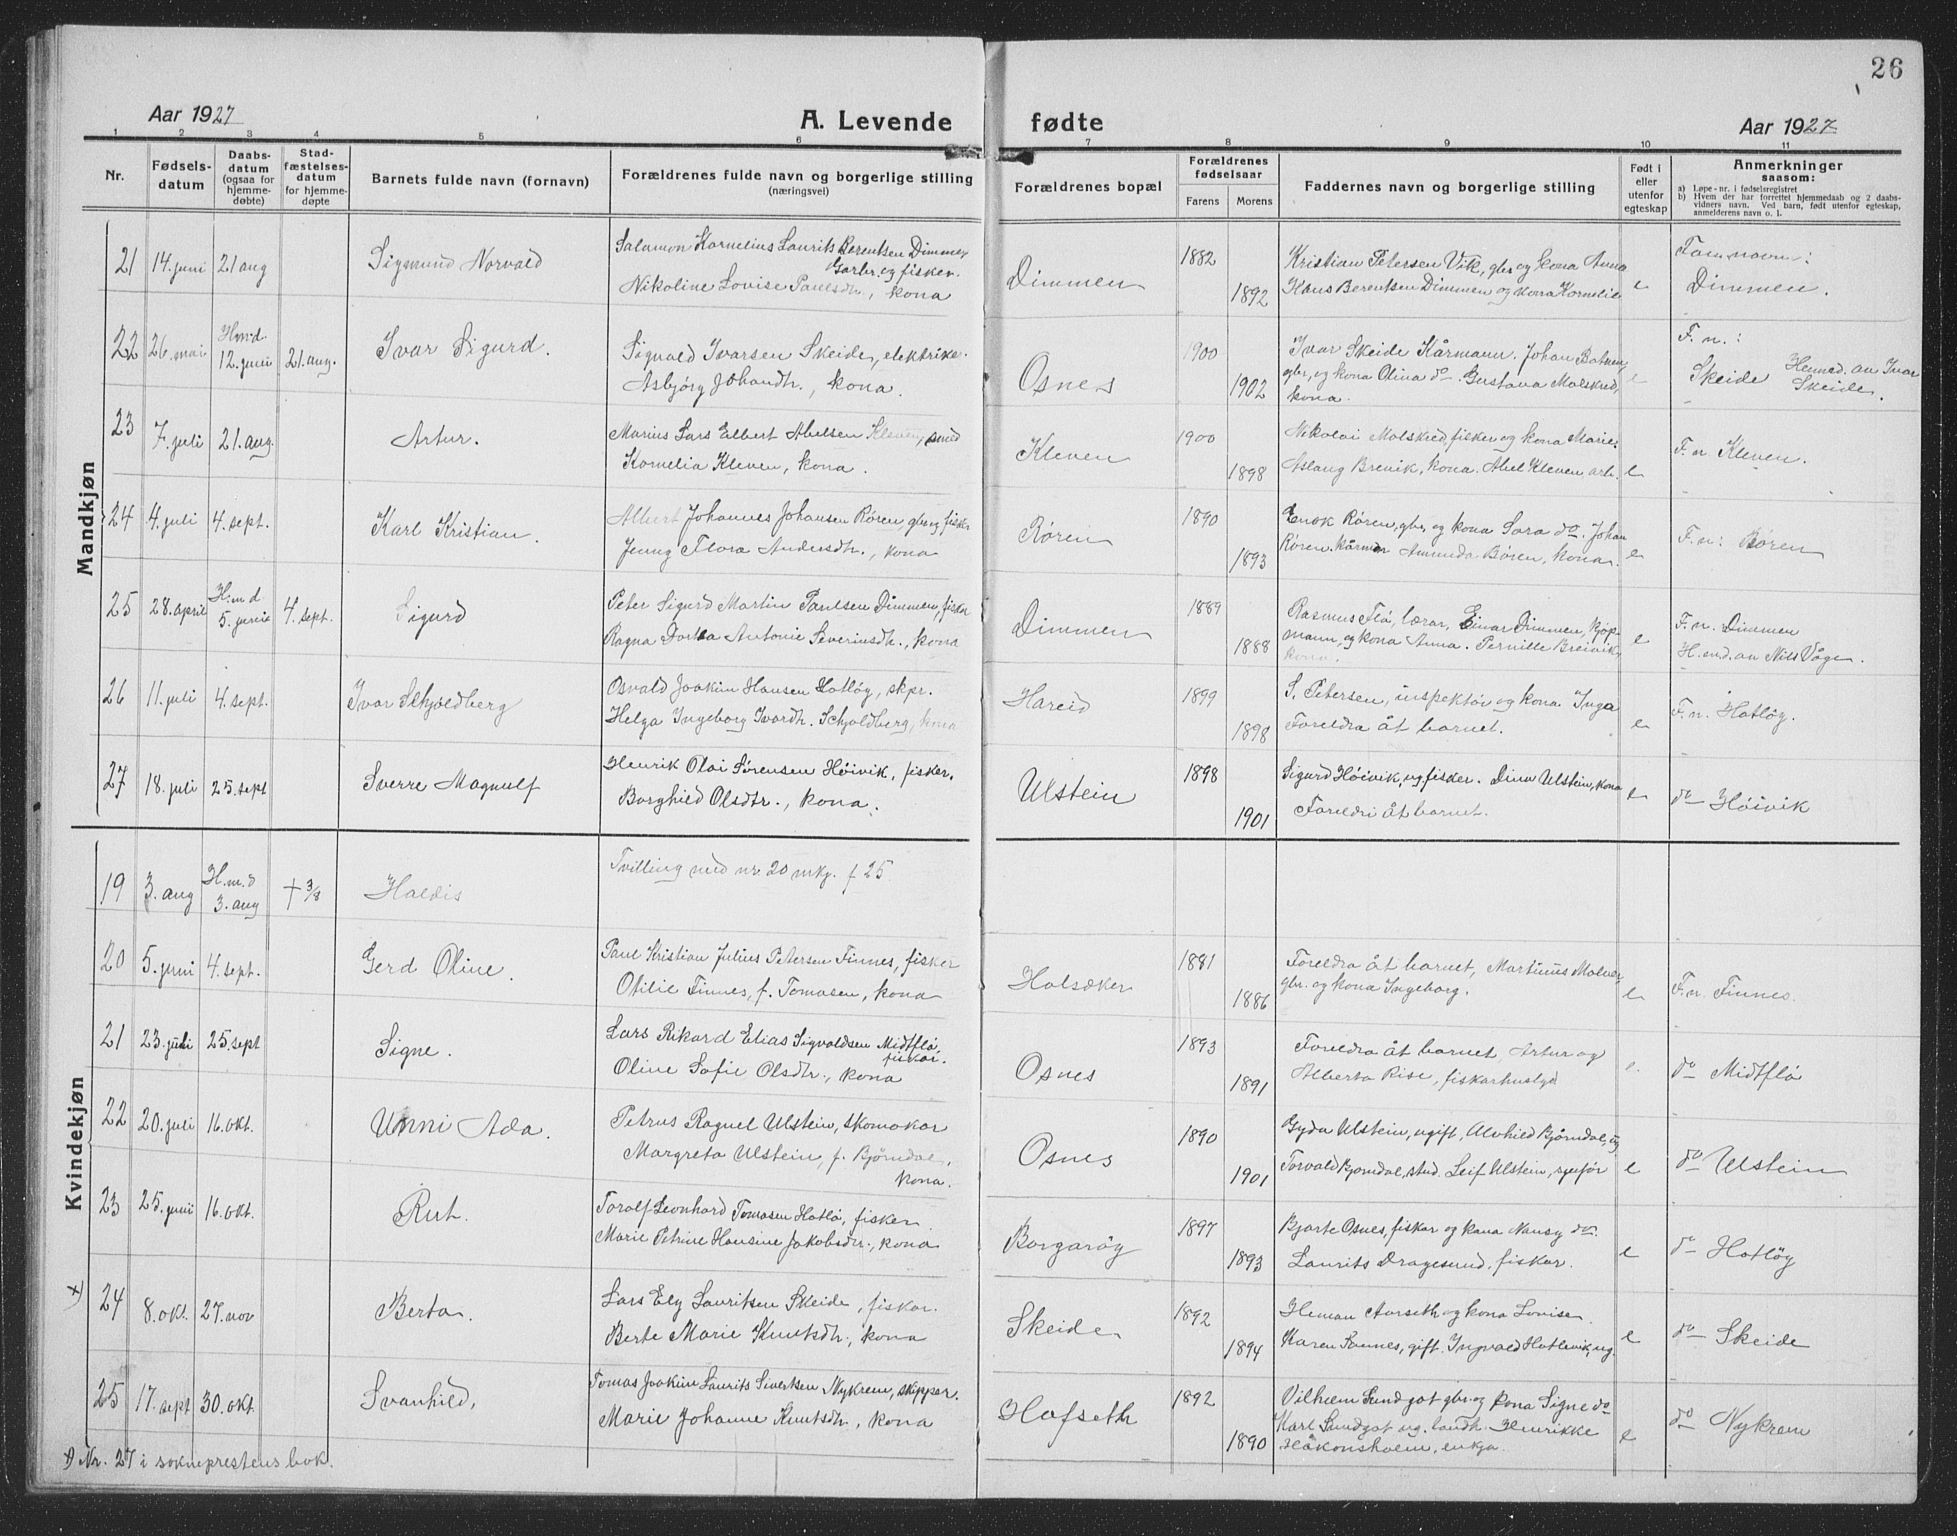 26
Aar 1927
A. Levende fødte
Aar 1927
1 2 3 4 5 6 7 8 9 10 11
Nr.
Fødsels-
datum
Daabs-
datum
(ogsaa for
hjemme-
døbte)
Stad-
fæstelses-
datum
for hjemme-
døpte
Barnets fulde navn (fornavn)
Forældrenes fulde navn og borgerlige stilling
(næringsvei)
Forældrenes bopæl
Forældrenes
fødselsaar
Farens Morens
Faddernes navn og borgerlige stilling
Født i
eller
utenfor
egteskap
Anmerkninger
saasom:
a) Løpe-nr. i fødselsregistret
b) Hvem der har forrettet hjemmedaab og 2 daabs-
vidners navn. Ved barn, født utenfor egteskap,
anmelderens navn o. l.
Mandkjøn
21 14. juni 21 aug Sigmund Norvald
Salamon Kornelius Laurits Berentsen Dimmen
Garbr. og fisker.
Nikoline Lovise Paulsdtr., kona
Dimmen 1882 1892
Kristian Petersen Vik, gbr og kona Anna
Hans Berentsen Dimmen og kona Kornelie
e
Fam.navn:
Dimmen.
22 26. mai Hm.d. 12. juni 21. aug. Ivar Sigurd.
Sigvald Ivarsen Skeide, elektrike.
Asbjørg Johandtr., kona.
Osnes 1900 1902
Ivar Skeide Kårmann. Johan Botnen
gbr., og kona Olina do. Gustava Molskred,
kona.
e
F. n.:
Skeide Hemed. av Ivar
Skeide.
23 7. juli 21. aug. Artur.
Marius Lars Elbert Abelsen Kleven, smed
Kornelia Kleven, kona.
Kleven 1900 1898
Nikolai Molskred, fisker og kona Marie.
Aslaug Brevik, kona. Abel Kleven arb.
e
F. n Kleven.
24 4. juli 4. sept. Karl Kristian.
Albert Johannes Johansen Røren gbr og fisker
Jenny Flora Andersdtr., kona
Røren 1890 1893
Enok Røren, gbr, og kona Sara do. Johan
Røren. Kårmann Amunda Røren, kona.
e
F. n: Røren
25 28. april H.m d 5. junie 4. sept. Sigurd
Peter Sigurd Martin Paulsen Dimmen, fisker
Ragna Dorthea Antonie Severinsdtr., kona
Dimmen 1889 1888
Rasmus Flø, lærar, Einar Dimmen, kjøp-
mann, og kona Anna. Pernille Breivik,
kona.
e
F. n. Dimmen
H.m.d. av Nils Våge.
26 11. juli 4. sept. Ivar Schjoldberg
Osvald Joakim Hansen Hatløy, skpr.
Helga Ingeborg Ivardtr. Schjoldberg, kona
Hareid 1899 1898
S. Petersen, inspektør og kona Inga
Foreldra åt barnet.
e
F. n. Hatløy.
27 18. juli 25. sept Sverre Magnulf
Henrik Olai Sørensen Høivik, fisker.
Borghild Olsdtr., kona.
Ulstein 1898 1901
Sigurd Høivik, ug fisker. Dina Ulstein, kona
Foreldri åt barnet.
e
do Høivik
Kvindekjøn
19 3. aug H.m.d 3. aug † 3/8 Haldis
Tvilling med nr. 20 mkj. f 25
20 5. juni 4. sept. Gerd Oline.
Paul Kristian Julius Petersen Finnes, fisker
Otilie Finnes, f. Tomasen, kona
Holsæker 1881 1886
Foreldra åt barnet, Martinus Malnes,
gbr. og kona Ingeborg.
e
F. n. Finnes.
21 23. juli 25. sept Signe.
Lars Rikard Elias Sigvaldsen Midtflø
fiskar.
Oline Sofie Olsdtr., kona
Osnes 1893 1891
Foreldra åt barnet, Artur og
Alberta Rise, fiskarhuslyd
do Midtflø
22 20. juli 16. okt. Unni Ada.
Petrus Ragnel Ulstein, skomakar
Margreta Ulstein, f. Bjørndal,
kona.
Osnes 1890 1901
Gyda Ulstein, ugift, Alvhild Bjørndal, ug
Torvald Bjørndal, stud. Leif Ulstein,
e
do Ulstein
23 25. juni 16. okt. Rut.
Toralf Leonhard Tomasen Hatlø, fisker.
Marie Petrine Hansine Jakobsdtr., kona
Borgarøy 1897 1893
Bjarte Osnes, fiskar og kona Nansy do.
Laurits Dragesund, fiskar.
e
do Hatløy
x) 24 8. okt. 27. nov Berta.
Lars Ely Lauritsen Skeide, fiskar.
Berte Marie Knutsdtr., kona
Skeide 1892 1894
Heman Aarseth og kona Lovise.
Karen Sannes, gift. Ingvald Hatlevik, ug.
e
do Skeide
25 17. sept 30. okt. Svanhild,
Tomas Joakim Laurits Sivertsen Nykrem, skipper.
Marie Johanne Knutsdtr., kona
Hafseth 1892 1890
Vilhelm Sundgot gbr. og kona Signe do
Karl Sundgot ug. landh. Henrikke
Håkonsholm, enkja.
e
do Nykrem
x) Nr. 27 i sokneprestens bok.